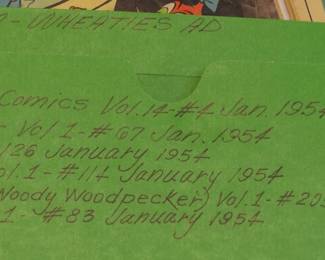 - WHEATIES AD
Comics Vol. 14 - #4 Jan. 1954
- Vol. 1 - #67 Jan. 1954
126 January 1954
ol. 1 - #114 January 1954
Woody Woodpecker) Vol. 1 - #20
1 - #83 January 1954